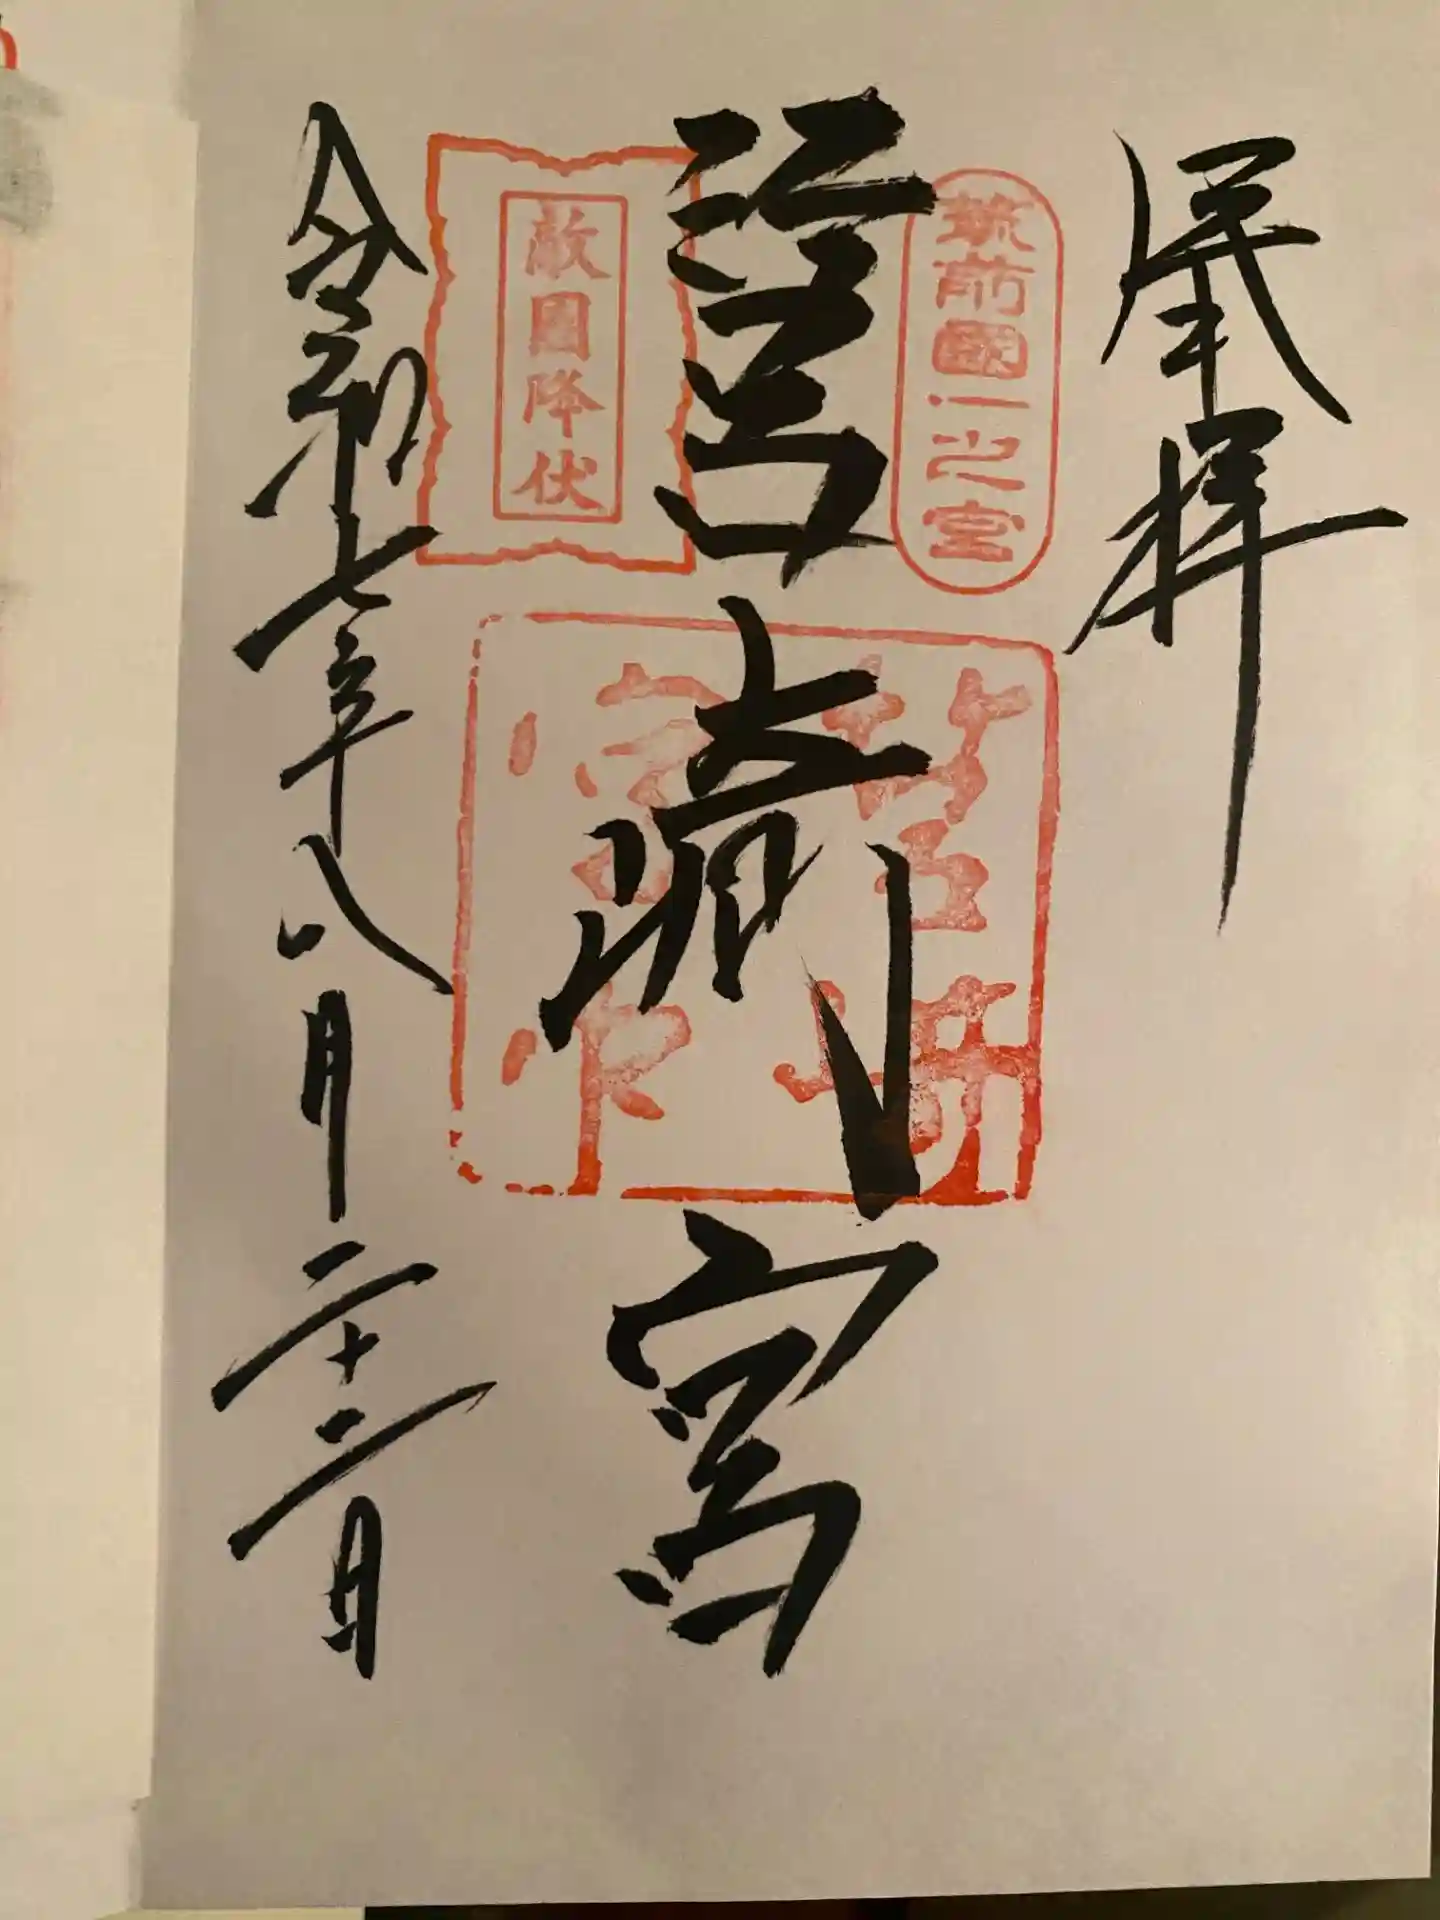 奉拝
筑前國一之宮
筥崎宮
敵國降伏
筥崎宮印
令和七年八月二十二日